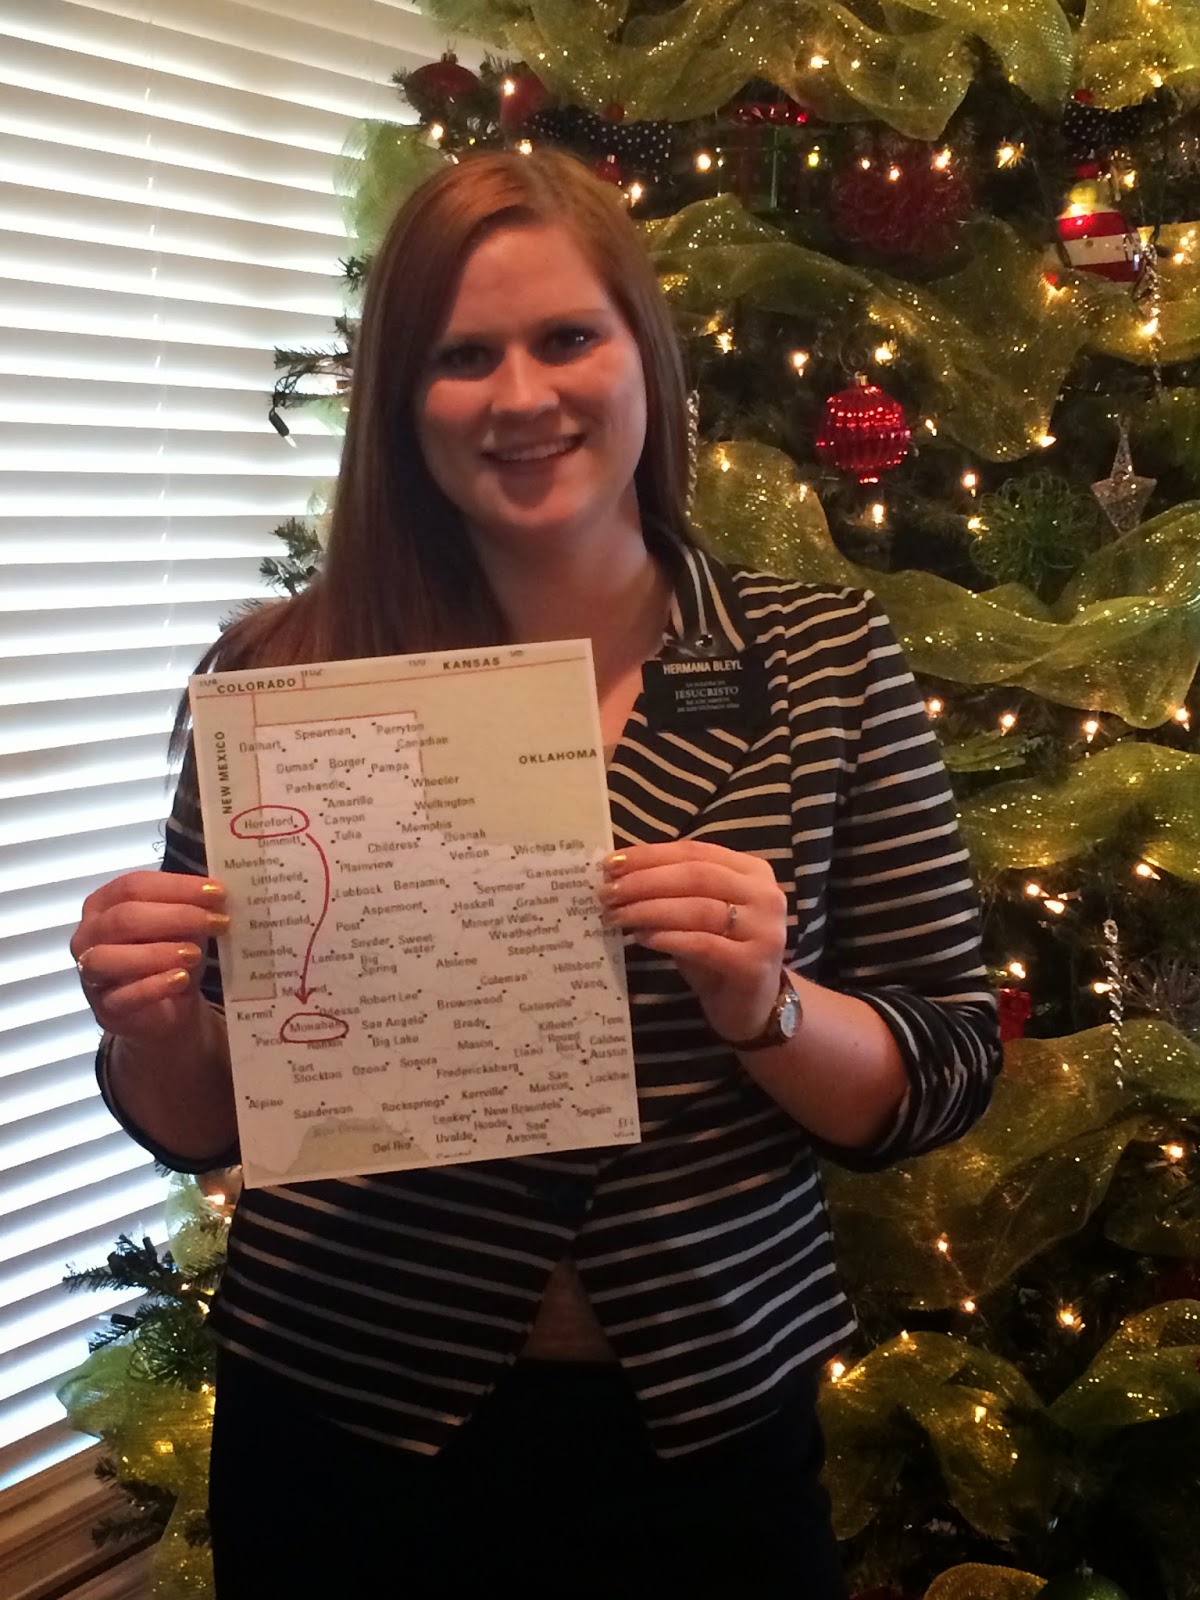 HERMANA BLEYL
JESUCRISTO
KANSAS
COLORADO
NEW MEXICO
OKLAHOMA
Spearman Perryton
Dalhart Canadian
Dumas Borger Pampa
Panhandle Wheeler
Amarillo Wellington
Hereford Canyon Memphis
Dimmitt Tulia Childress Quanah
Muleshoe Plainview Vernon Wichita Falls
Littlefield Gainesville
Levelland Lubbock Benjamin Seymour Denton
Aspermont Haskell Graham Fort
Brownfield Post Mineral Wells Worth
Weatherford
Seminole Lamesa Snyder Sweet-
water Stephenville
Big
Spring Abilene
Andrews Coleman Hillsboro
Midland Robert Lee Brownwood Gatesville Waco
Kermit Odessa
Monahans San Angelo Brady Killeen
Rankin Big Lake Mason Llano Round
Rock Austin
Fort
Stockton Ozona Sonora Fredericksburg
San
Marcos
Alpine Sanderson Rocksprings Kerrville
Leakey New Braunfels Seguin
Hondo San
Antonio
Del Rio Uvalde